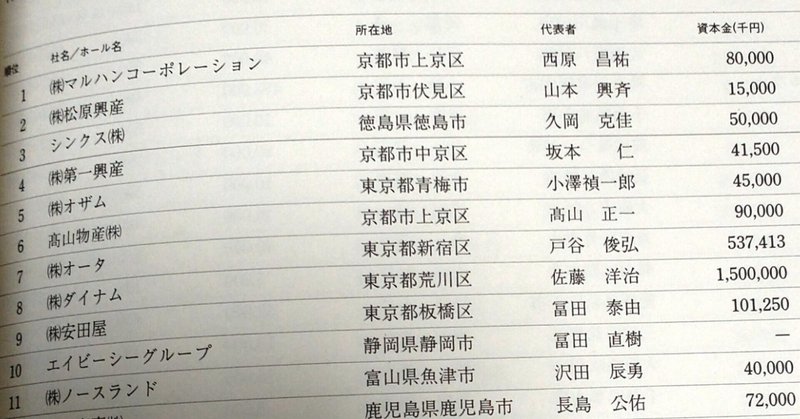 順位 社名/ホール名 所在地 代表者 資本金(千円)
1 ㈱マルハンコーポレーション 京都市上京区 西原 昌祐 80,000
2 ㈱松原興産 京都市伏見区 山本 興斉 15,000
3 シンクス㈱ 徳島県徳島市 久岡 克佳 50,000
4 ㈱第一興産 京都市中京区 坂本 仁 41,500
5 ㈱オザム 東京都青梅市 小澤禎一郎 45,000
6 髙山物産㈱ 京都市上京区 髙山 正一 90,000
7 ㈱オータ 東京都新宿区 戸谷 俊弘 537,413
8 ㈱ダイナム 東京都荒川区 佐藤 洋治 1,500,000
9 ㈱安田屋 東京都板橋区 冨田 泰由 101,250
10 エイビーシーグループ 静岡県静岡市 冨田 直樹 ―
11 ㈱ノースランド 富山県魚津市 沢田 辰勇 40,000
鹿児島県鹿児島市 長島 公佑 72,000